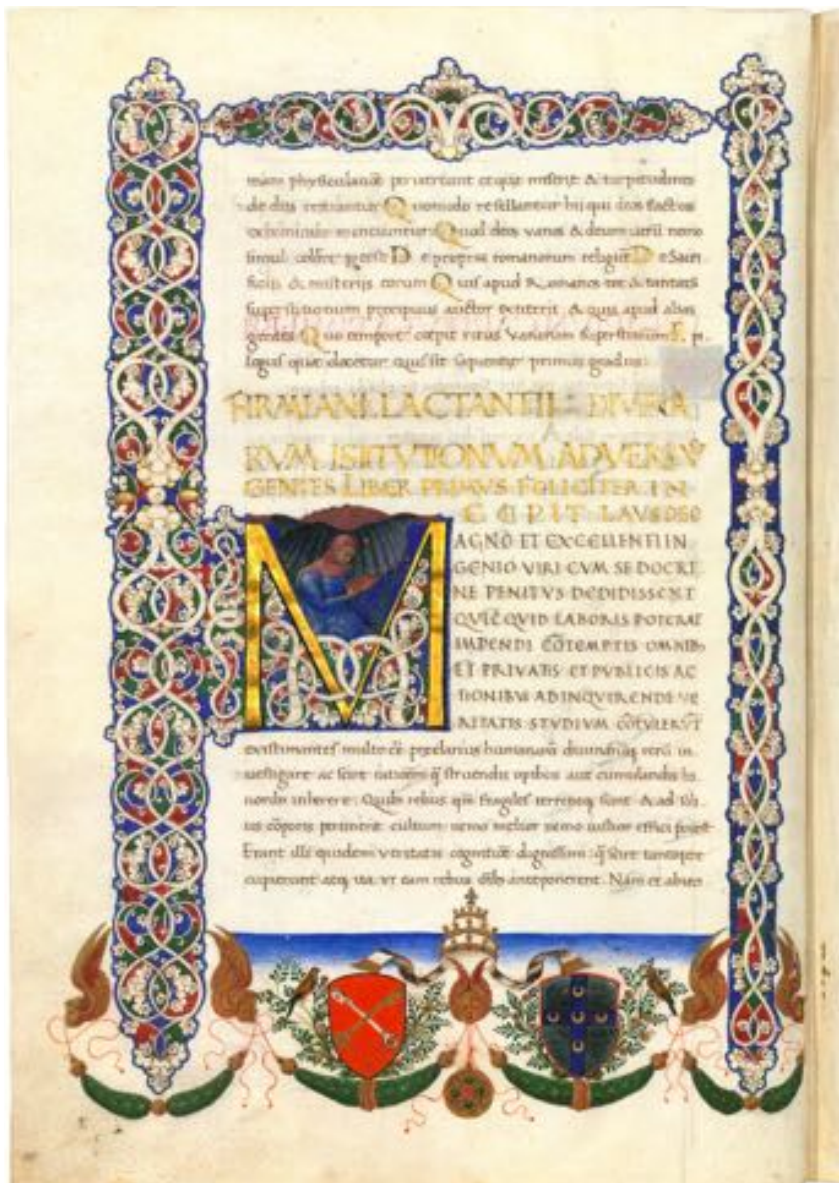 niam physiculando per
de diis testiantur Quomodo refellantur hii qui deos factos
ex homine mentiantur Quod deos varios & deum verū nemo
simul colere potest De propriis romanorum religiōībus De Sacri
ficiis & misterijs eorum Quis apud Romanos tot & tantarū
superstitionum precipuus auctor extiterit & quis apud alias
gentes Quo tempore cœpit ritus vanarum superstitionum E pi
logus quæ docetur quis sit sapientiæ primus gradus
FIRMIANI LACTANTII DIVINA
RVM ISTITVTIONVM ADVERSVS
GENTES LIBER PRIMVS FOLICITER IN
CEPIT LAVS DEO
MAGNO ET EXCELLENTI IN
GENIO VIRI CVM SE DOCTRI
NE PENITVS DEDIDISSENT
QVICQVID LABORIS POTERAT
IMPENDI CŌTEMPTIS OMNIBꝰ
ET PRIVATIS ET PVBLICIS AC
TIONIBVS AD INQVIRENDE VE
RITATIS STVDIVM CŌTVLERVT
existimantes multo eē preclarius humanarū divinarūq rerū in
uestigare ac scire rationem q̃ struendis opibus aut cumulandis ho
noribꝰ inherere Quibꝰ rebus qm̄ fragiles terreneq sunt & ad soli
us corporis pertinent cultum nemo melior nemo iustior effici potest
Erant illi quidem veritatis cognitione dignissimi q̃ scire tantopere
cupierunt atq ita vt eam rebus oībꝰ anteponerent. Nam et abiec